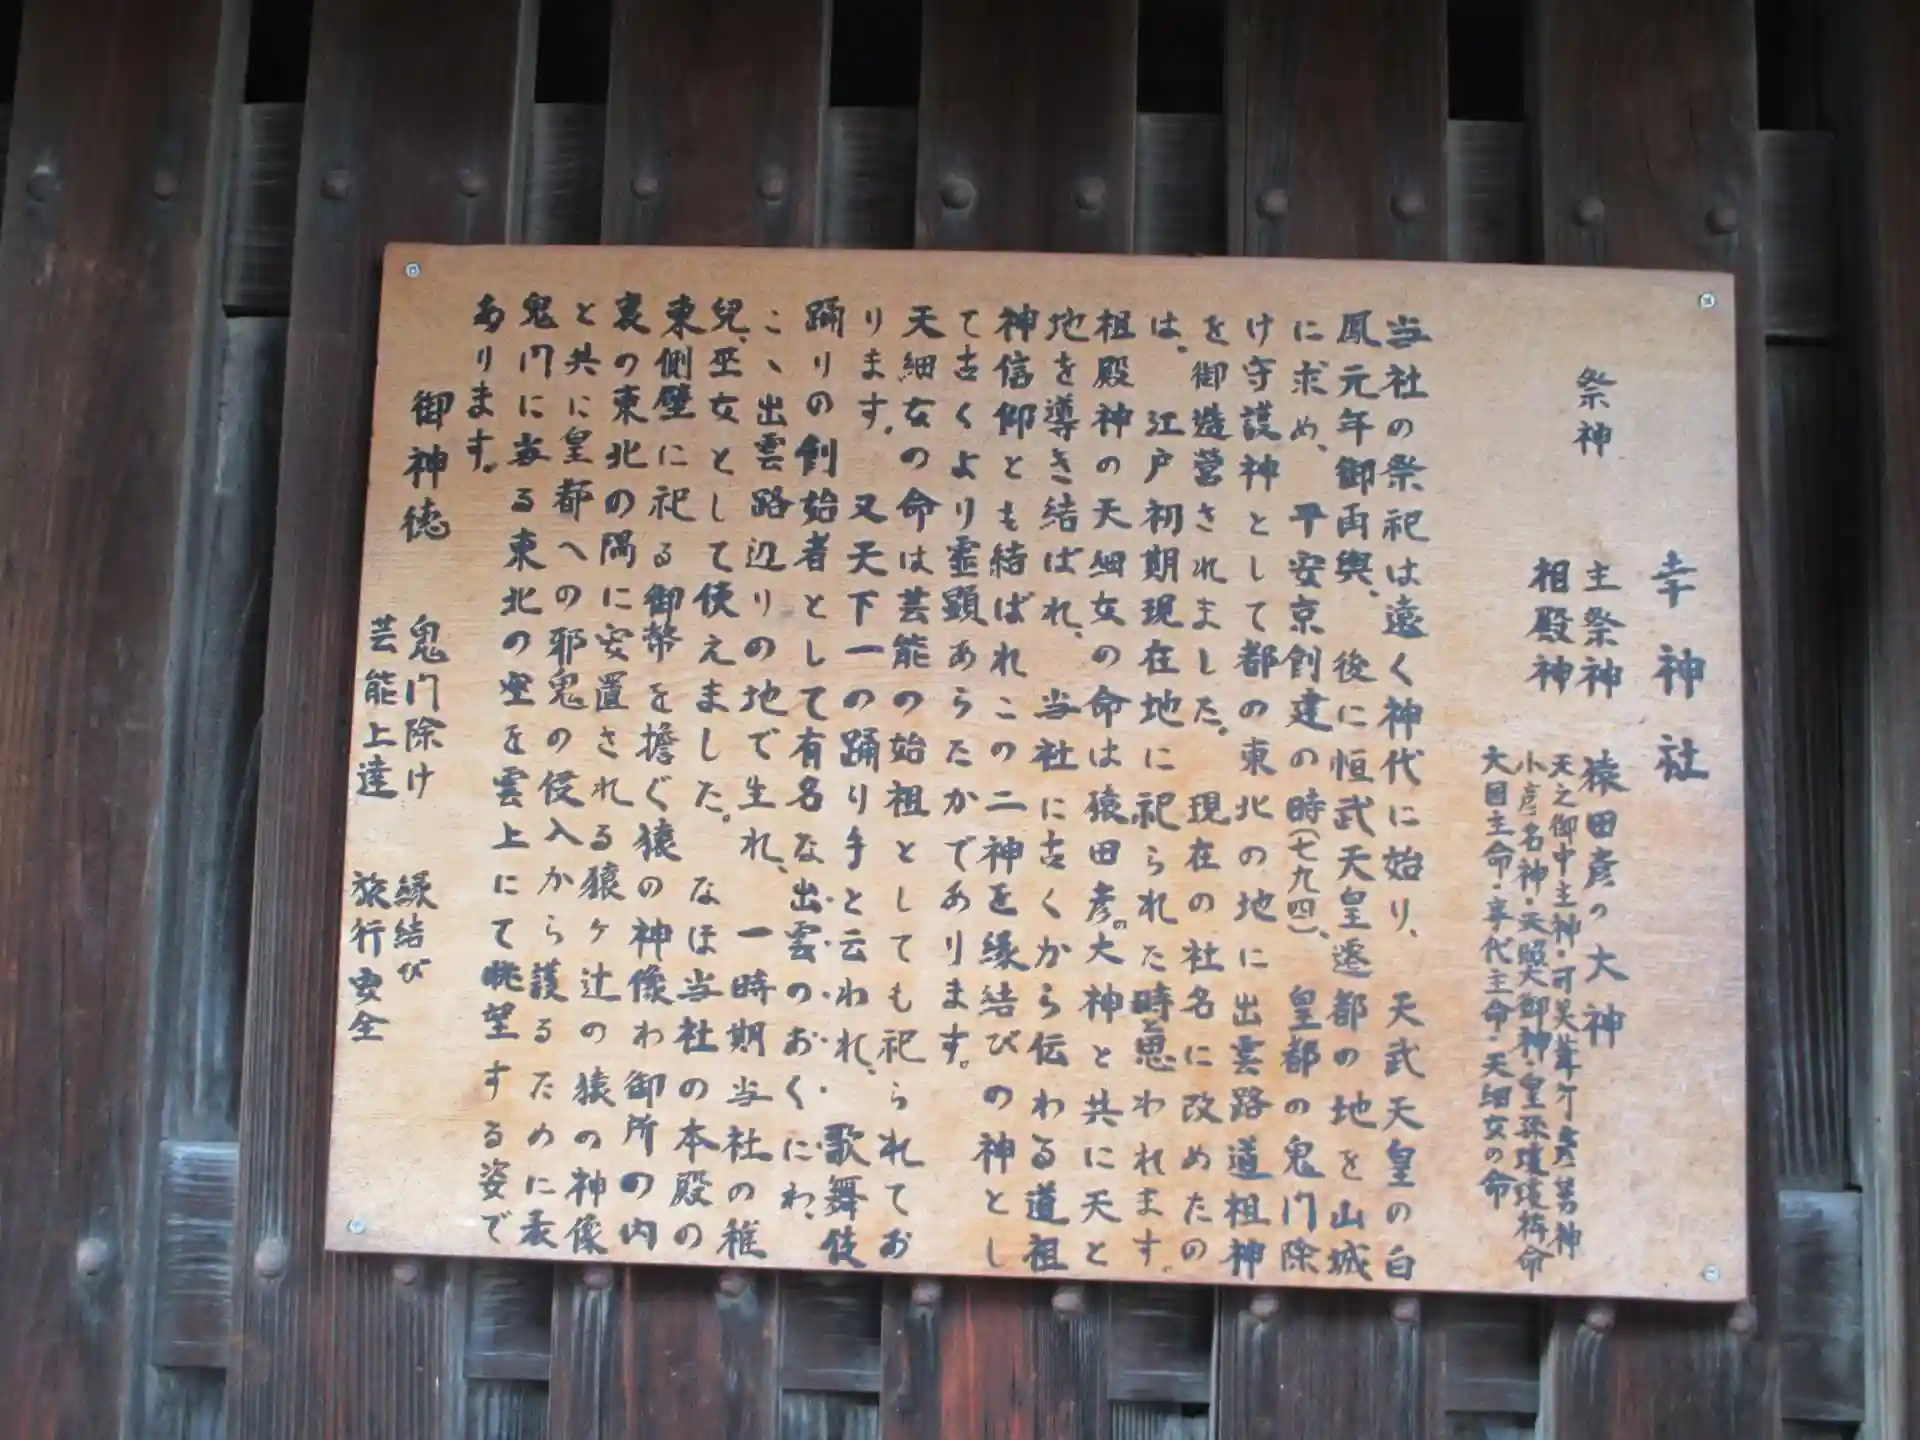 幸神社
祭神
主祭神 猿田彦の大神
相殿神
天之御中主神・可美葦牙彦男神
小彦名神・天照大御神・皇孫瓊瓊杵命
大国主命・事代主命・天細女の命
当社の祭祀は遠く神代に始り、天武天皇の白
鳳元年御再興、後に恒武天皇遷都の地を山城
に求め、平安京創建の時(七九四)、皇都の鬼門除
け守護神として都の東北の地に出雲路道祖神
を御造営されました。現在の社名に改めたの
は。江戸初期現在地に祀られた時と思われます。
祖殿神の天細女の命は猿田彦。大神と共に天と
地を導き結ばれ、当社に古くから伝わる道祖
神信仰とも結ばれこの二神を縁結びの神とし
て古くより霊顕あらたかであります。
天細女の命は芸能の始祖としても祀られてお
ります。又天下一の踊り手と云われ、歌舞伎
踊りの創始者として有名な出雲のおくにわ、
こゝ出雲路辺りの地で生れ、一時期当社の稚
児、巫女として使えました。なほ当社の本殿の
東側壁に祀る御幣を擔ぐ猿の神像わ御所の内
裏の東北の隅に安置される猿ヶ辻の猿の神像
と共に皇都への邪鬼の侵入から護るために表
鬼門に当る東北の空を雲上にて眺望する姿で
あります。
御神徳
鬼門除け 縁結び
芸能上達 旅行安全